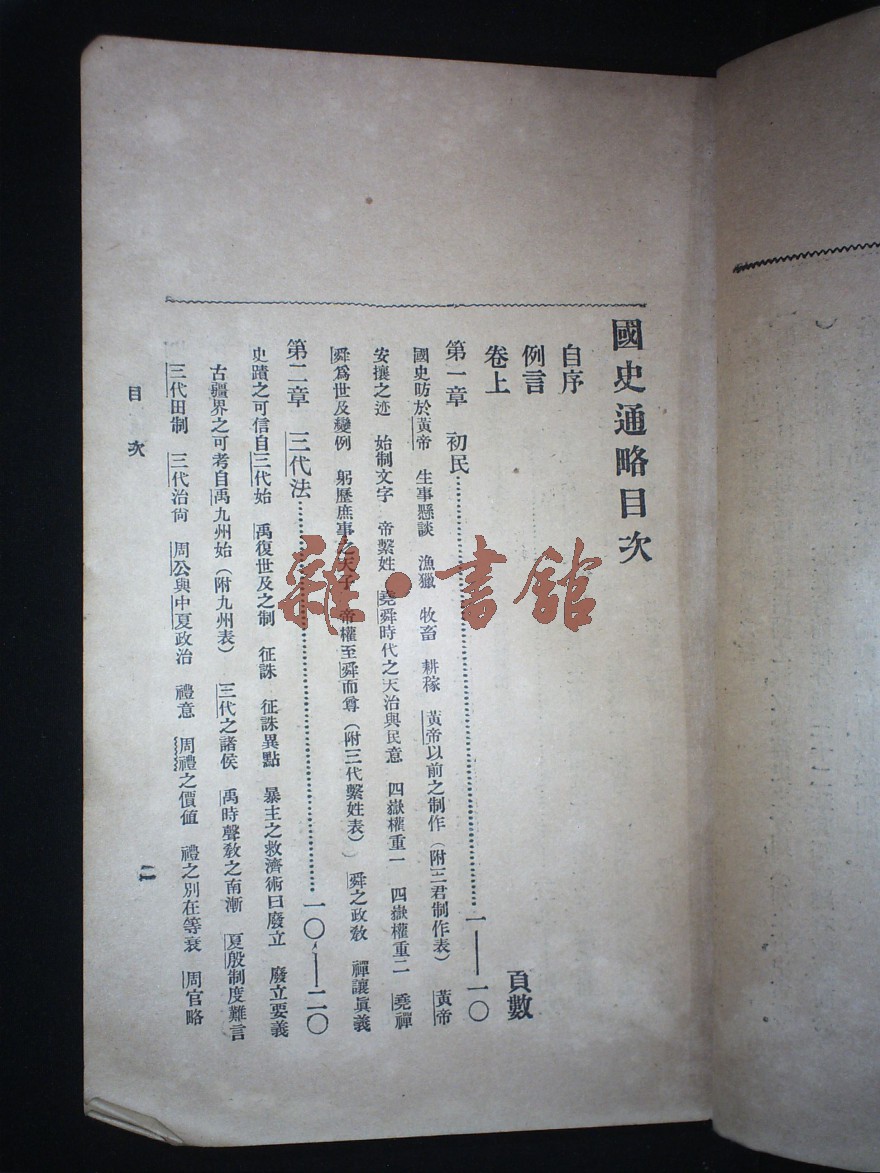 國史通略目次
自序
例言
卷上
頁數
第一章 初民……一——一〇
國史昉於黃帝 生事懸談 漁獵 牧畜 耕稼 黃帝以前之制作（附三君制作表） 黃帝
安攘之迹 始制文字 帝繫姓 堯舜時代之天治與民意 四嶽權重一 四嶽權重二 堯禪
舜爲世及變例 躬歷庶事之天子 帝權至舜而尊（附三代繫姓表） 舜之政敎 禪讓眞義
第二章 三代法……一〇——二〇
史蹟之可信自三代始 禹復世及之制 征誅 征誅異點 暴主之救濟術曰廢立 廢立要義
古疆界之可考自禹九州始（附九州表） 三代之諸侯 禹時聲敎之南漸 夏殷制度難言
三代田制 三代治尙 周公與中夏政治 禮意 周禮之價値 禮之別在等衰 周官略
目次
雜·書館